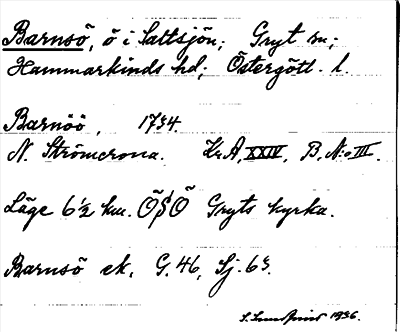 Barnsö, ö i Saltsjön; Gryt sn;
Hammarkinds hd; Östergötl. l.
Barnöö, 1734.
N. Strömcrona. Kr.A, XXIV, B, N:o III.
Läge 6½ km. ÖSÖ Gryts kyrka.
Barnsö ek. G. 46, Sj. 63.
1936.